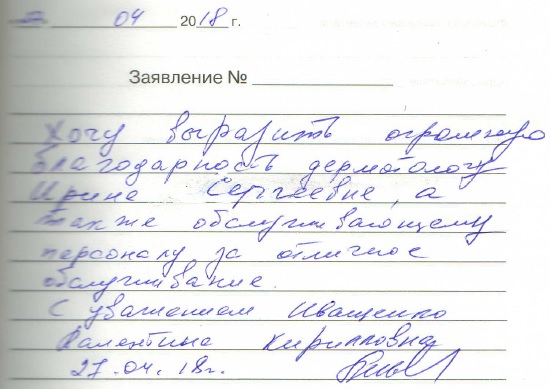 04 2018 г.
Заявление №
Хочу выразить огромную
благодарность дерматологу
Ирине Сергеевне, а
также обслуживающему
персоналу за отличное
обслуживание.
С уважением Иващенко
Валентина Кирилловна
27.04.18г.